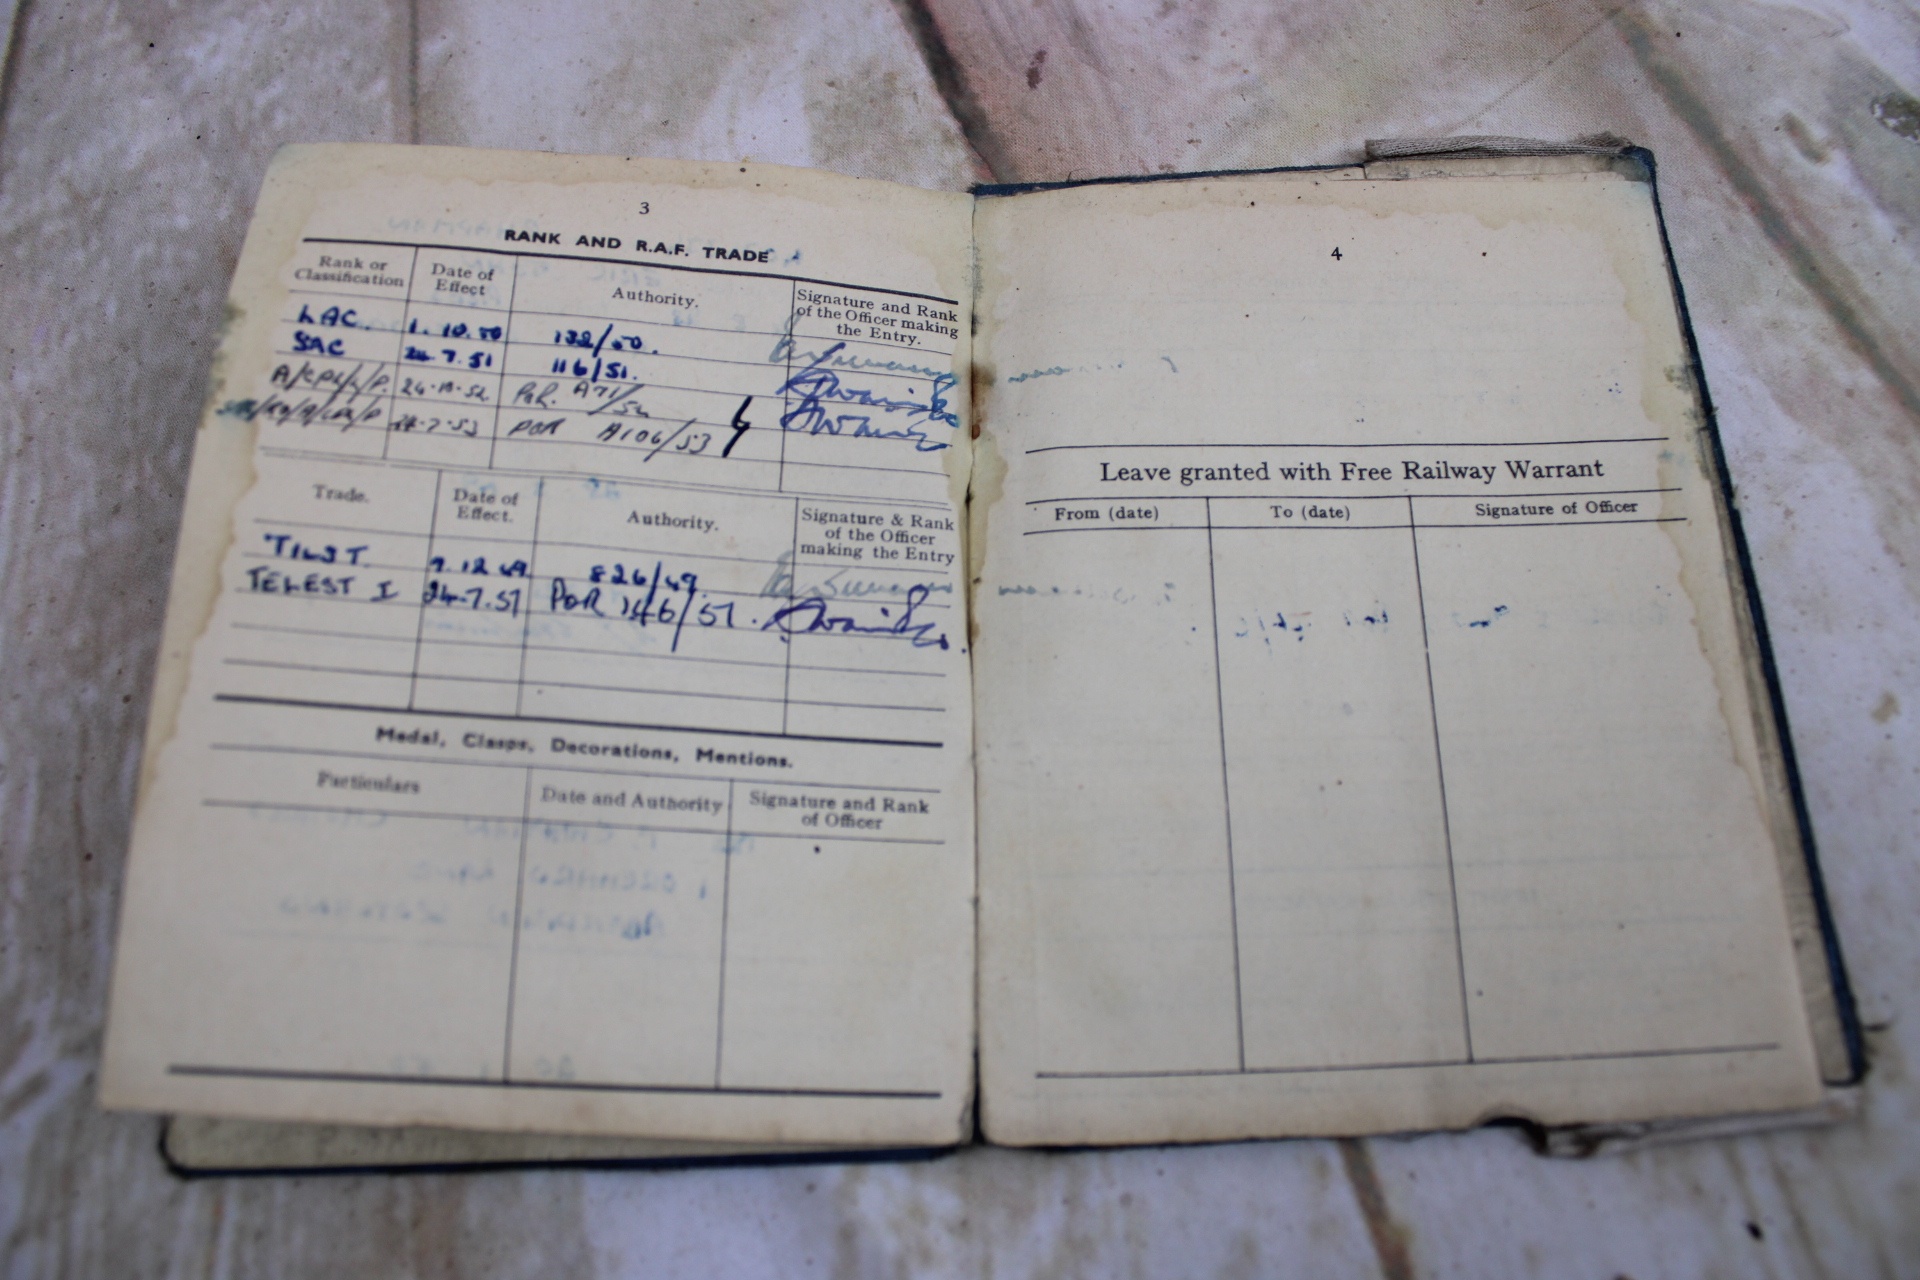 3
RANK AND R.A.F. TRADE
Rank or Classification
Date of Effect
Authority.
Signature and Rank of the Officer making the Entry.
LAC. 1.10.50 132/50.
SAC 24.7.51 116/51.
A/CPL/L/P. 24.11.52 POR. A71/52
24.7.53 POR A106/53
Trade.
Date of Effect.
Authority.
Signature & Rank of the Officer making the Entry
9.12.49 826/49.
TELEST I 24.7.51 POR 146/51.
Medal, Clasps, Decorations, Mentions.
Particulars
Date and Authority
Signature and Rank of Officer
4
Leave granted with Free Railway Warrant
From (date)
To (date)
Signature of Officer